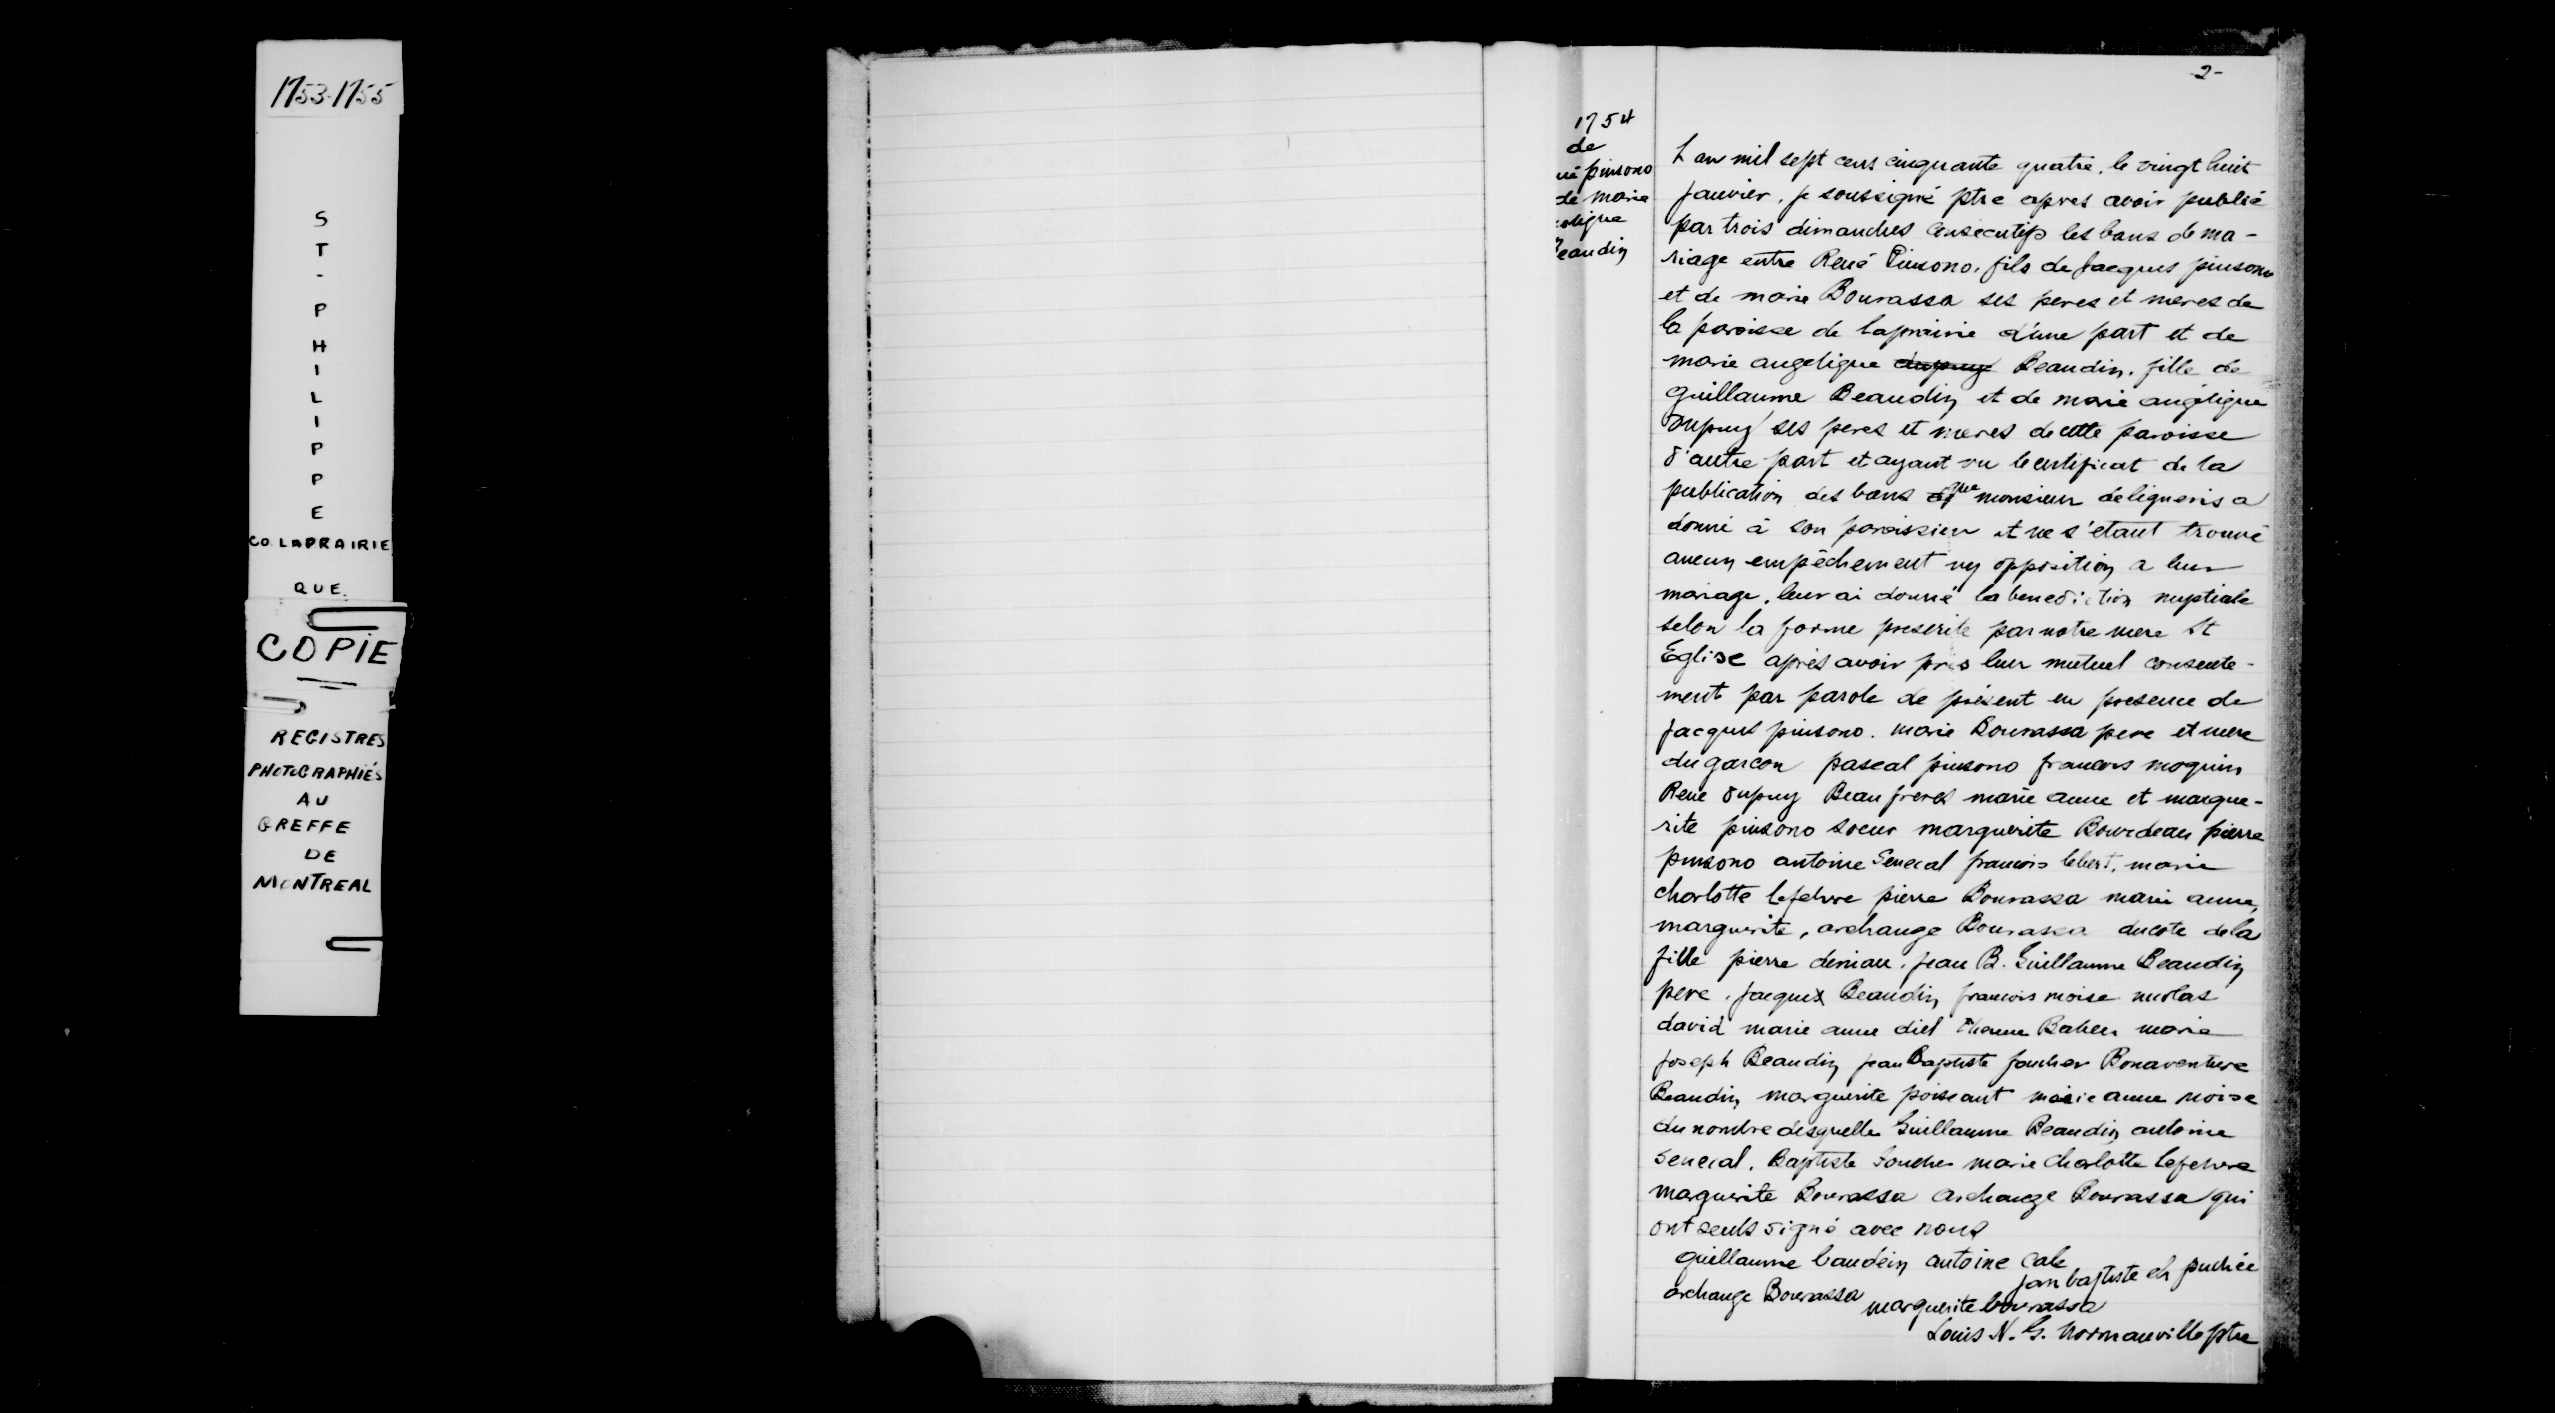 1753-1755
S
T
-
P
H
I
L
I
P
P
E
CO. LAPRAIRIE
QUE.
COPIE
REGISTRES
PHOTOGRAPHIÉS
AU
GREFFE
DE
MONTREAL
2-
1754
de
né pinsono
de marie
eligue
Beaudin
L an mil sept cens cinquante quatre, le vingt huit
janvier, je soussigné ptre apres avoir publié
par trois dimanches consecutifs les bans de ma-
riage entre René Pinsono, fils de Jacques pinsono
et de marie Bourassa ses peres et meres de
la paroisse de laprairie d'une part et de
marie angelique dupuy Beaudin, fille de
guillaume Beaudin et de marie angélique
dupuy ses peres et meres de cette paroisse
d'autre part et ayant vu le certificat de la
publication des bans que monsieur deligneris a
donné à son paroissien et ne s'etant trouvé
aucun empêchement ny opposition a leur
mariage, leur ai donné la benediction nuptiale
selon la forme prescrite par notre mere St
Eglise après avoir pris leur mutuel consente-
ment par parole de présent en presence de
jacques pinsono. marie Bourassa pere et mere
du garcon pascal pinsono francois moquin
René dupuy Beau freres marie anne et margue-
rite pinsono soeur marguerite Bourdeau pierre
pinsono antoine Senecal francois lebert, marie
charlotte lefebvre pierre Bourassa marie anne,
marguerite, archange Bourassa du coté de la
fille pierre deniau, jean B. Guillaume Beaudin
pere, jacques Beaudin francois moise nicolas
david marie anne diel Babeu marie
joseph Beaudin jean Baptiste foucher Bonaventure
Beaudin marguerite poissant marie anne moise
du nombre desquelle Guillaume Beaudin antoine
senecal, Baptiste foucher marie charlotte lefebvre
marguerite Bourassa archange Bourassa qui
ont seuls signé avec nous
guillaume baudein antoine cale
jan baptiste
archange Bourassa
marguerite bourassa
Louis N. G. Normanville ptre